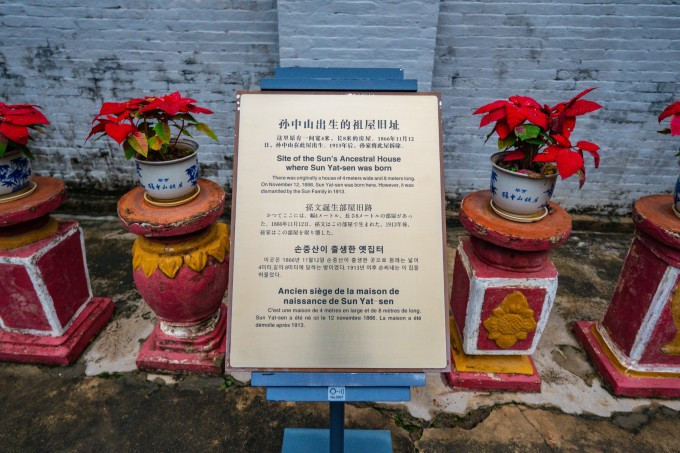 孙中山出生的祖屋旧址
这里原有一间宽4米，长8米的房屋。1866年11月12
日，孙中山在此屋出生。1913年后，孙家将此屋拆除。
Site of the Sun's Ancestral House
where Sun Yat-sen was born
There was originally a house of 4 meters wide and 8 meters long.
On November 12, 1866, Sun Yat-sen was born here. However, it was
dismantled by the Sun Family in 1913.
孫文誕生部屋旧跡
かつてここには、幅4メートル、長さ8メートルの部屋があっ
た。1866年11月12日、孫文はこの部屋で生まれた。1913年後、
孫家はこの部屋を取り壊した。
손중산이 출생한 옛집터
이곳은 1866년 11월12일 손중산이 출생한 곳으로 원래는 넓이
4미터,길이 8미터에 달하는 방이였다. 1913년 이후 손씨네는 이 집을
허물었다.
Ancien siège de la maison de
naissance de Sun Yat-sen
C'est une maison de 4 mètres en large et de 8 mètres de long.
Sun Yat-sen a été né ici le 12 novembre 1866. La maison a été
démolie après 1913.